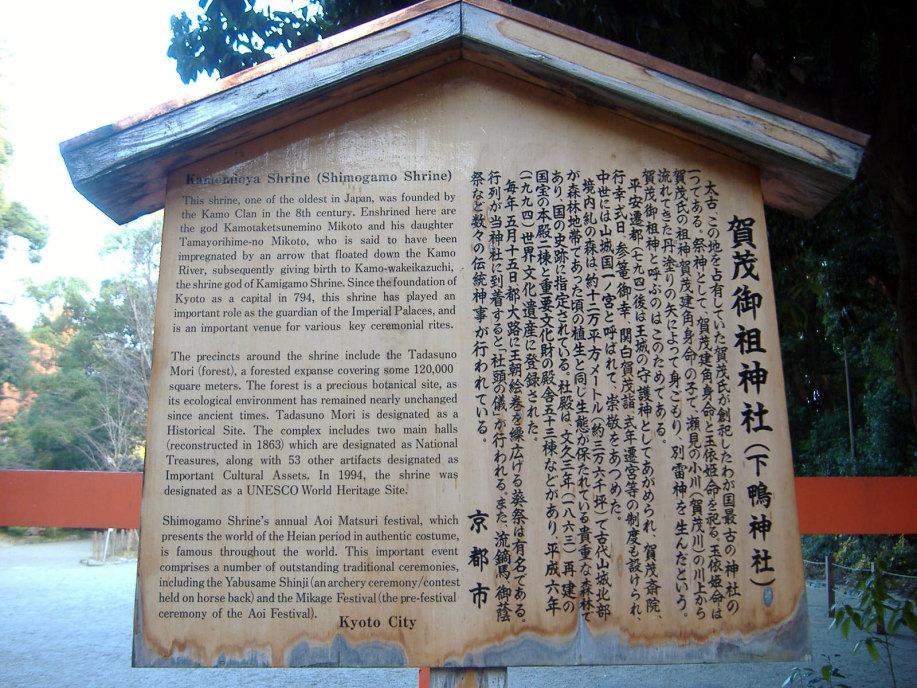 Kamomioya Shrine (Shimogamo Shrine)
This shrine, one of the oldest in Japan, was founded by
the Kamo Clan in the 8th century. Enshrined here are
the god Kamotaketsunemino Mikoto and his daughter
Tamayorihime-no Mikoto, who is said to have been
impregnated by an arrow that floated down the Kamo
River, subsequently giving birth to Kamo-wakeikazuchi,
the shrine god of Kamigamo Shrine. Since the foundation of
Kyoto as a capital in 794, this shrine has played an
important role as the guardian of the Imperial Palaces, and
is an important venue for various key ceremonial rites.
The precincts around the shrine include the Tadasuno
Mori (forest), a forested expanse covering some 120,000
square meters. The forest is a precious botanical site, as
its ecological environment has remained nearly unchanged
since ancient times. Tadasuno Mori is designated as a
Historical Site. The complex includes two main halls
(reconstructed in 1863) which are designated as National
Treasures, along with 53 other artifacts designated as
Important Cultural Assets. In 1994, the shrine was
designated as a UNESCO World Heritage Site.
Shimogamo Shrine's annual Aoi Matsuri festival, which
presents the world of the Heian period in authentic costume,
is famous throughout the world. This important event
comprises a number of outstanding traditional ceremonies,
including the Yabusame Shinji (an archery ceremony/contest
held on horse back) and the Mikage Festival (the pre-festival
ceremony of the Aoi Festival).
Kyoto City
賀茂御祖神社(下鴨神社)
太古、この地を占有していた賀茂氏が創祀したわが国最古の神社の
一つであり、祭神として、賀茂建角身命と玉依姫命を祀る。玉依姫命が
賀茂の祖神賀茂建角身命の子で、瀬見の小川(賀茂川)の川上から
流れてきた丹塗りの矢によって身ごもり、別雷神を生んだという。
賀茂御祖神と呼ぶのはこのためである。
平安遷都(七九四)後は王城の守護神としてあがめられ、賀茂斎院、
行幸、式日参篭、御幸、関白賀茂詣、式年遷宮等の制度も設けられ
中世には山城国一ノ宮と呼ばれて、崇敬をあつめた。
境内糺の森は、約十二万平方メートル(約三万六千坪)で古代山城北部
が森林地帯であった頃の植生と同じ生態が保たれている貴重な森林で
あり、国の史跡に指定されている。社殿は、文久三年(一八六三)再建の
国宝の本殿二棟と重要文化財の殿舎五十三棟などがあり、平成六年
(一九九四)世界文化遺産に登録された。
毎年五月十五日、都大路に王朝絵巻を繰り広げる葵祭は有名である。
行列が当神社に到着すると社頭の儀が行われる。また、流鏑馬、御蔭
祭など数々の伝統神事が行われている。
京都市